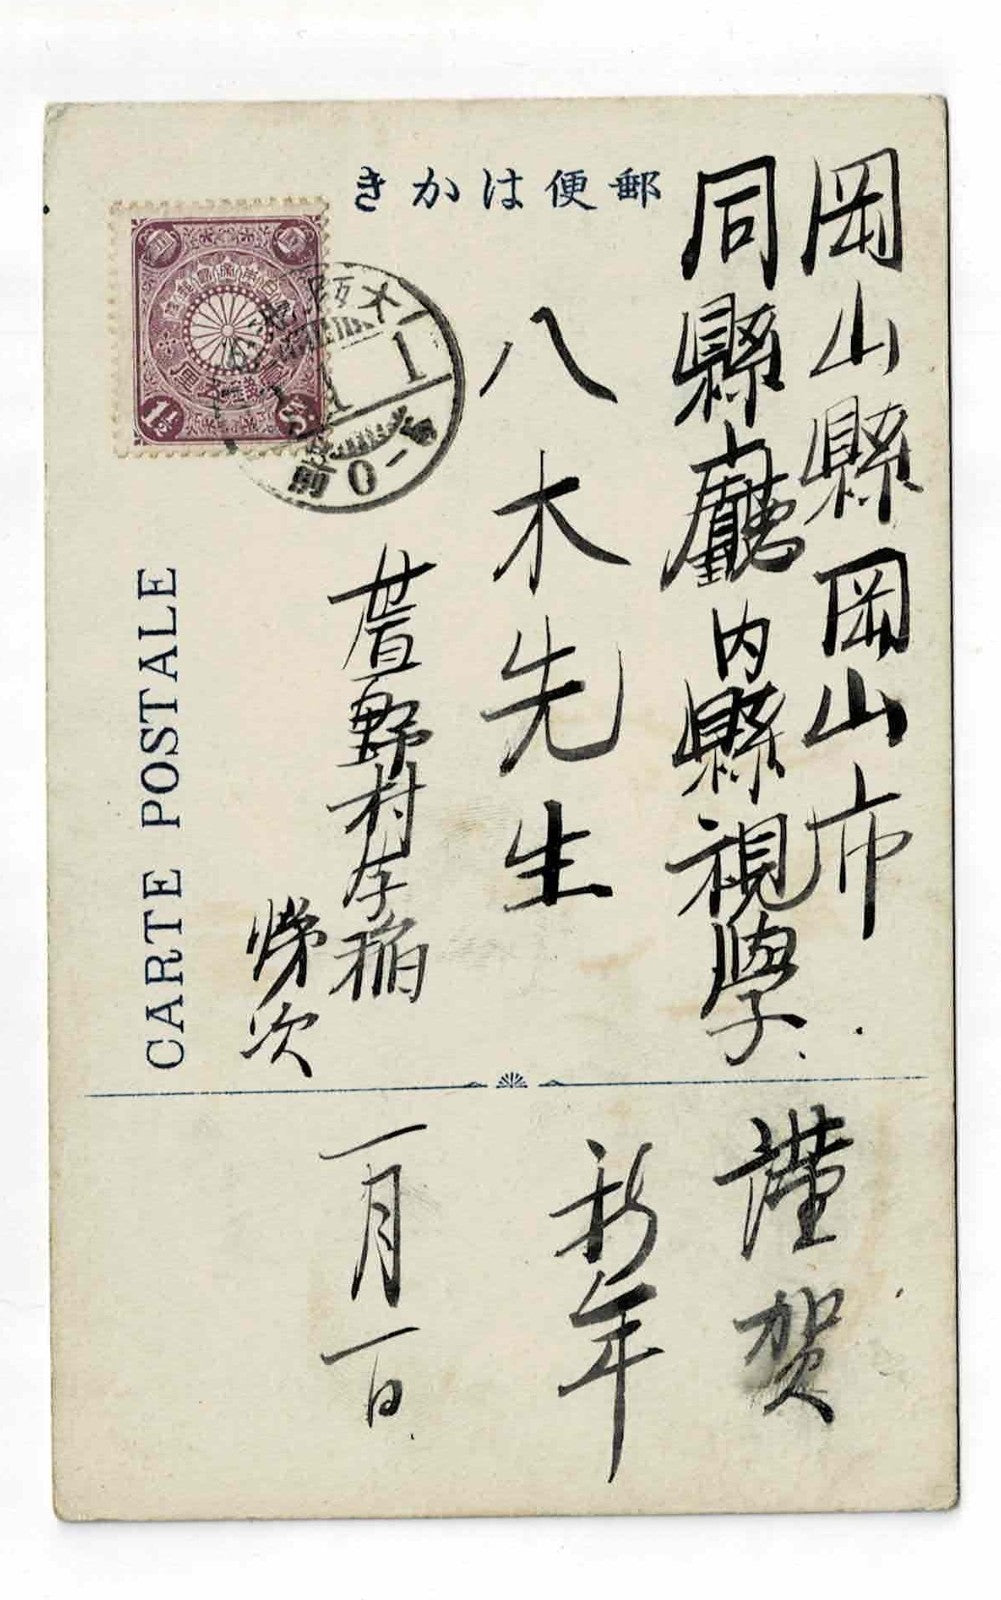 郵便はかき
岡山縣岡山市
同縣廳内縣視學
八木先生
野村
次
謹賀
新年
一月一日
CARTE POSTALE
大阪
1 1
前0-5
1½ Sn